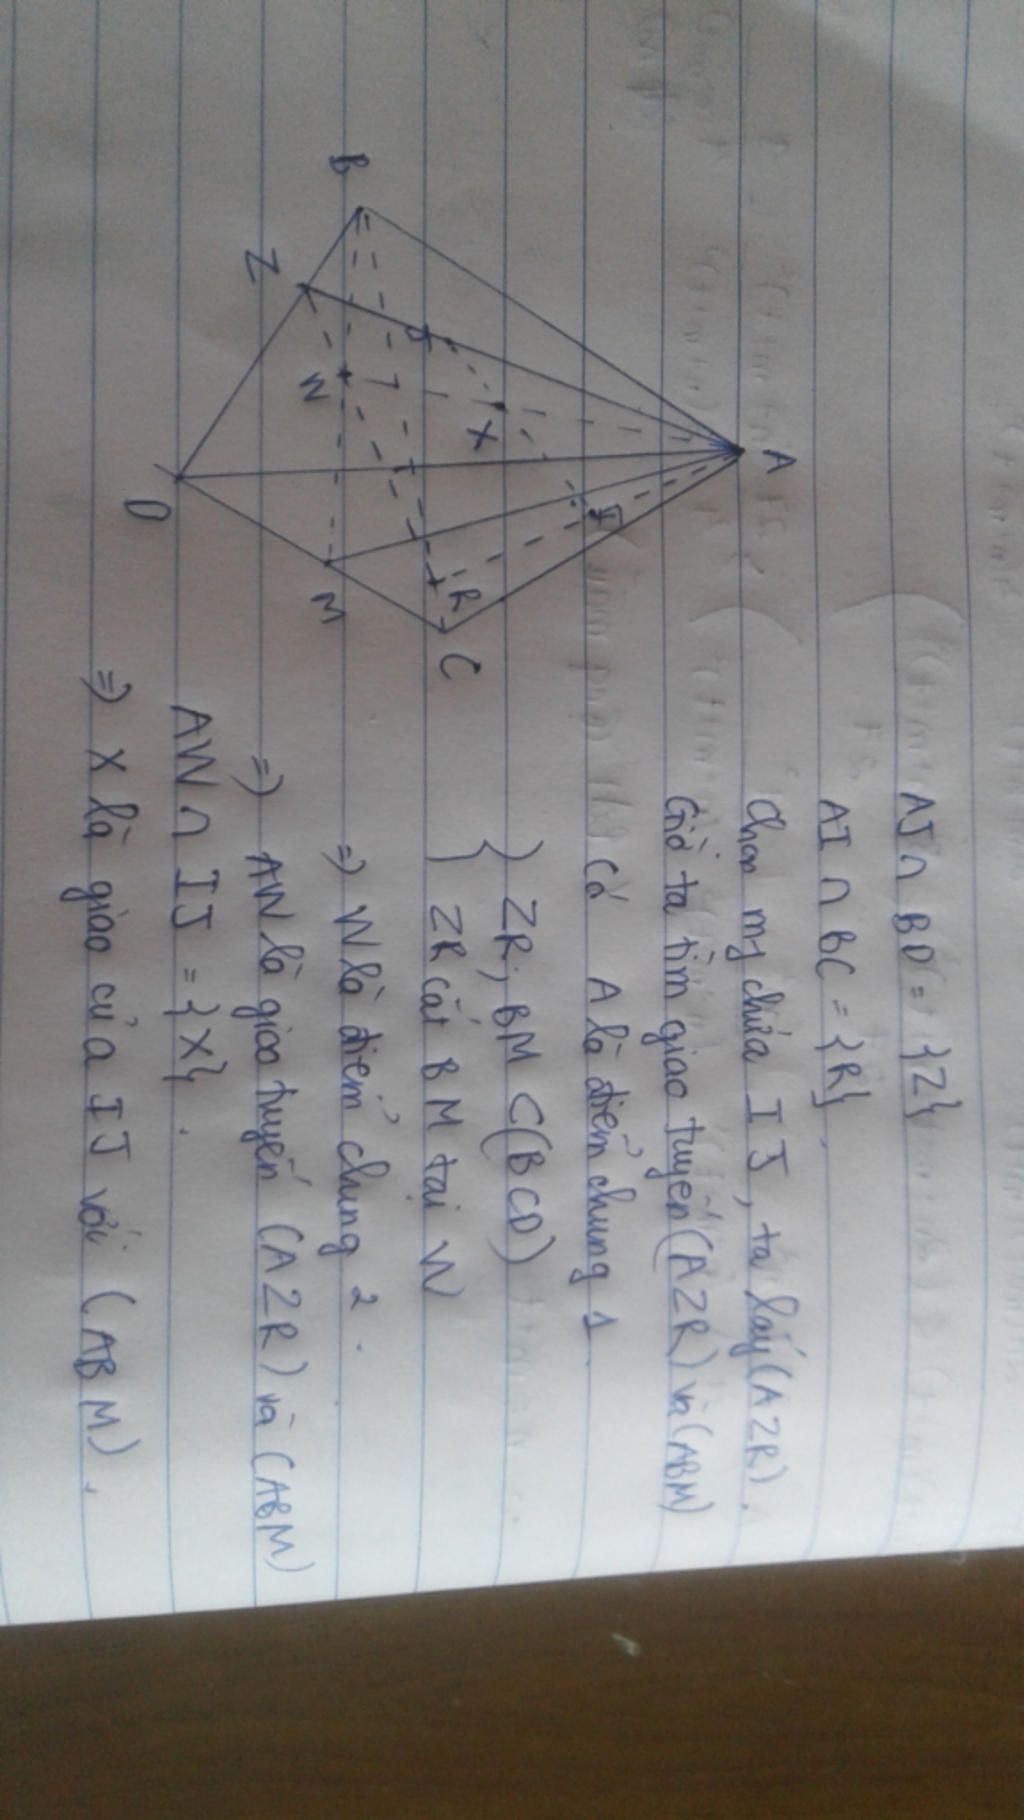 A
B
Z
J
W
X
I
R
M
C
D
AJ ∩ BD = {Z}
AI ∩ BC = {R}.
Chọn mp chứa IJ, ta lấy (AZR).
Giờ ta tìm giao tuyến (AZR) và (ABM)
Có A là điểm chung 1.
} ZR; BM ⊂ (BCD)
} ZR cắt BM tại W
=> W là điểm chung 2.
=> AW là giao tuyến (AZR) và (ABM)
AW ∩ IJ = {X}.
=> X là giao của IJ với (ABM).